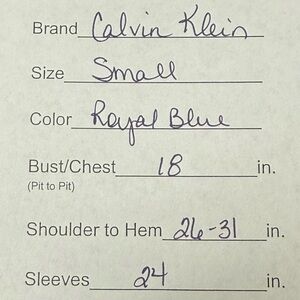 Brand Calvin Klein
Size Small
Color Royal Blue
Bust/Chest 18 in.
(Pit to Pit)
Shoulder to Hem 26-31 in.
Sleeves 24 in.